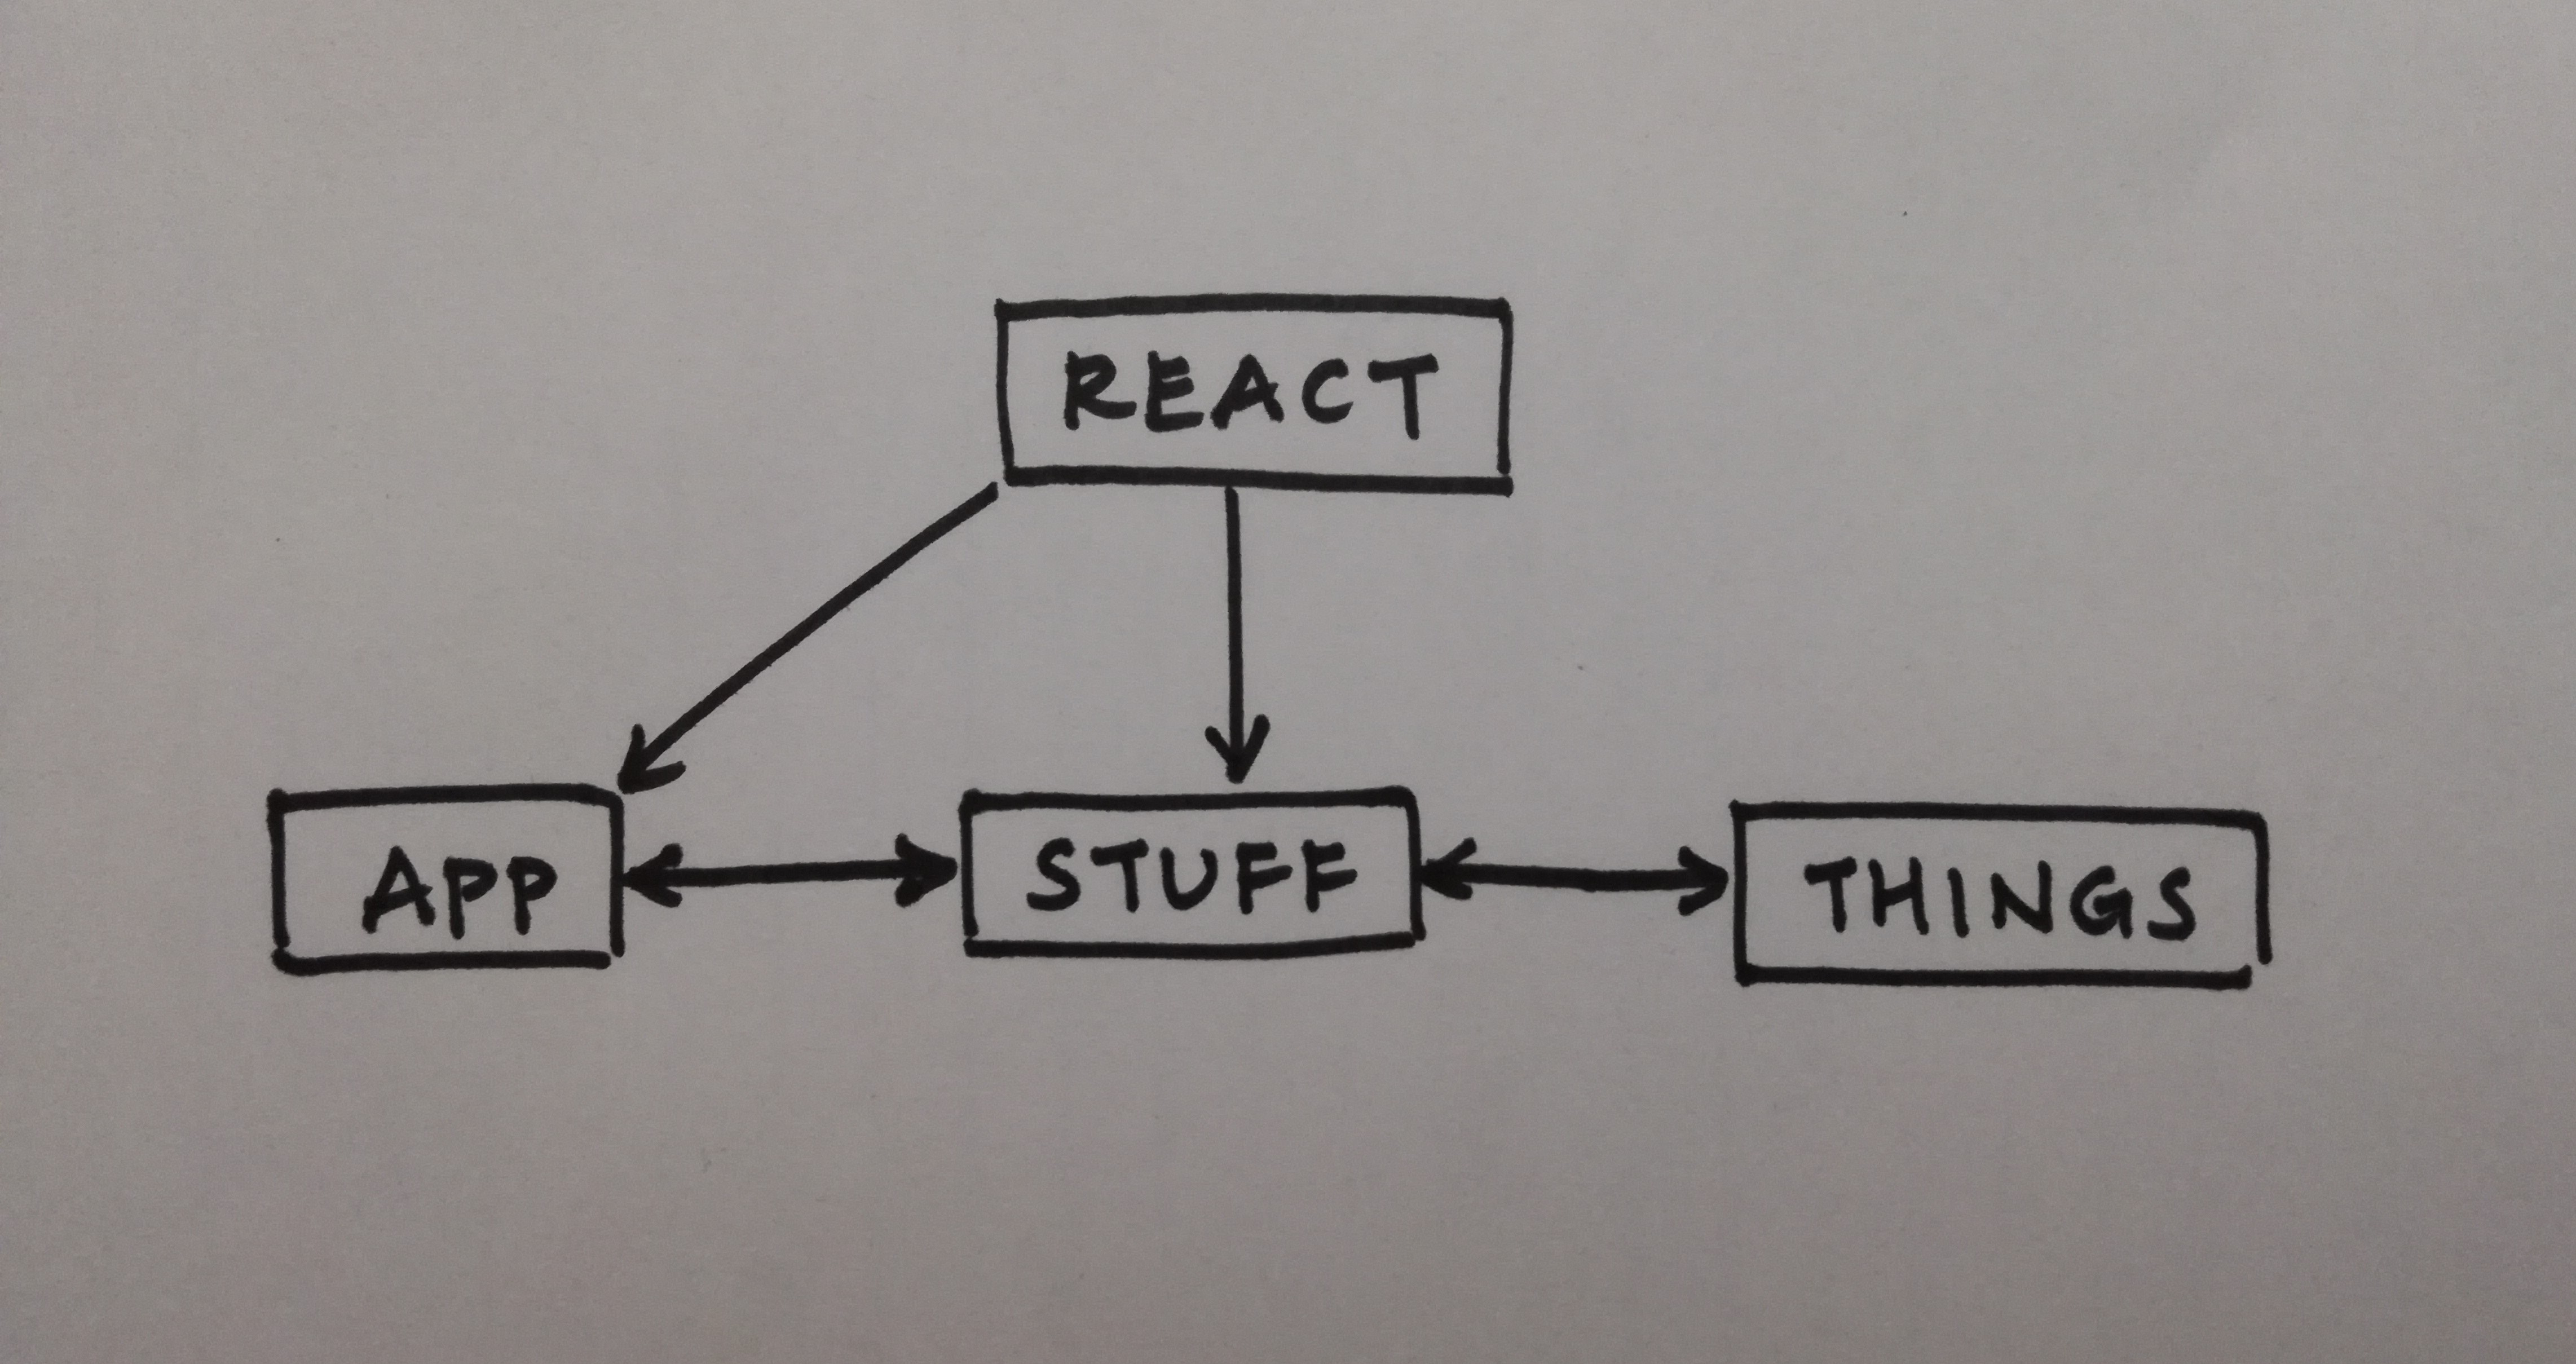 REACT
APP
STUFF
THINGS